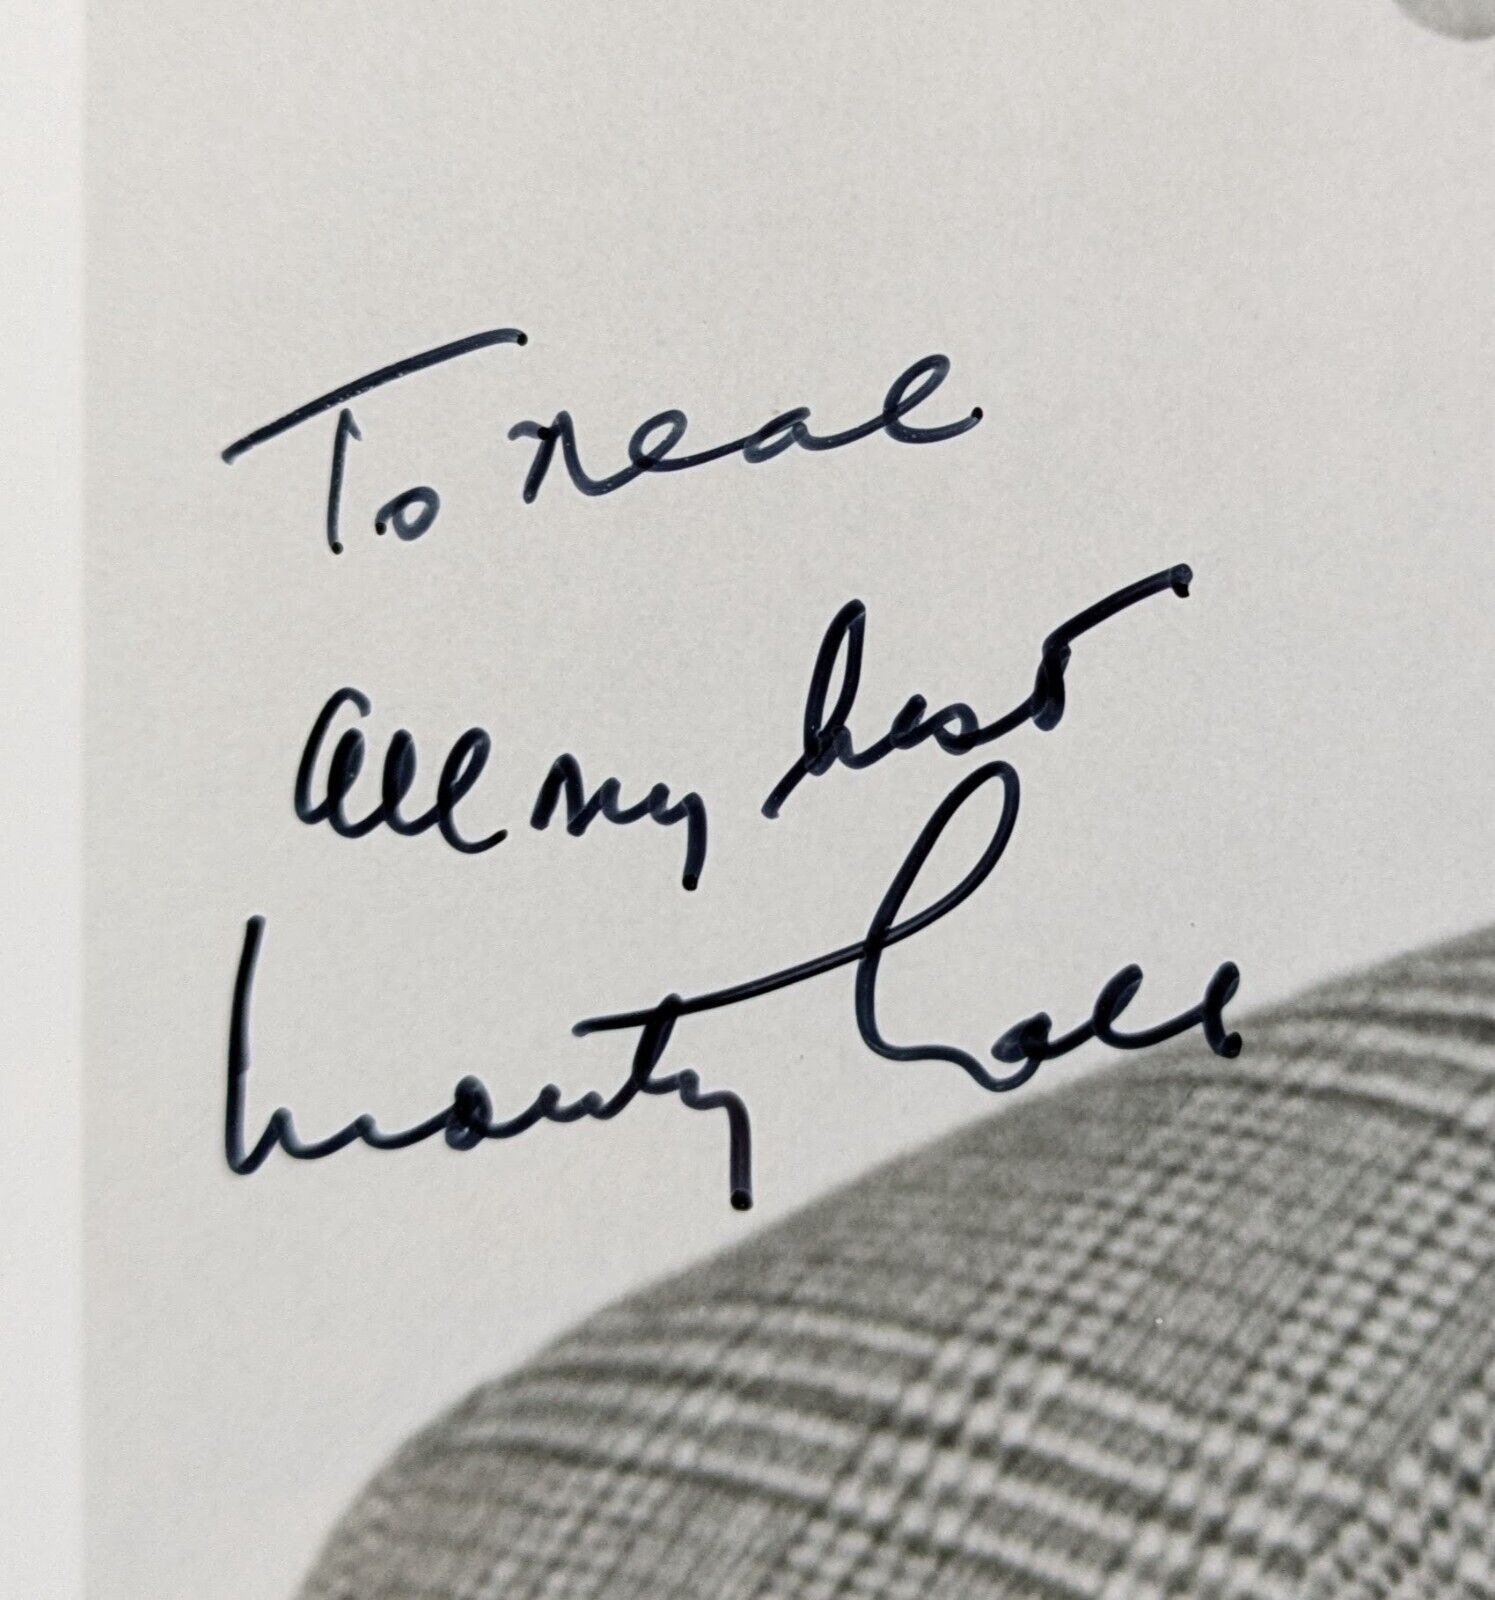 To Neal
All my best
Monty Hall